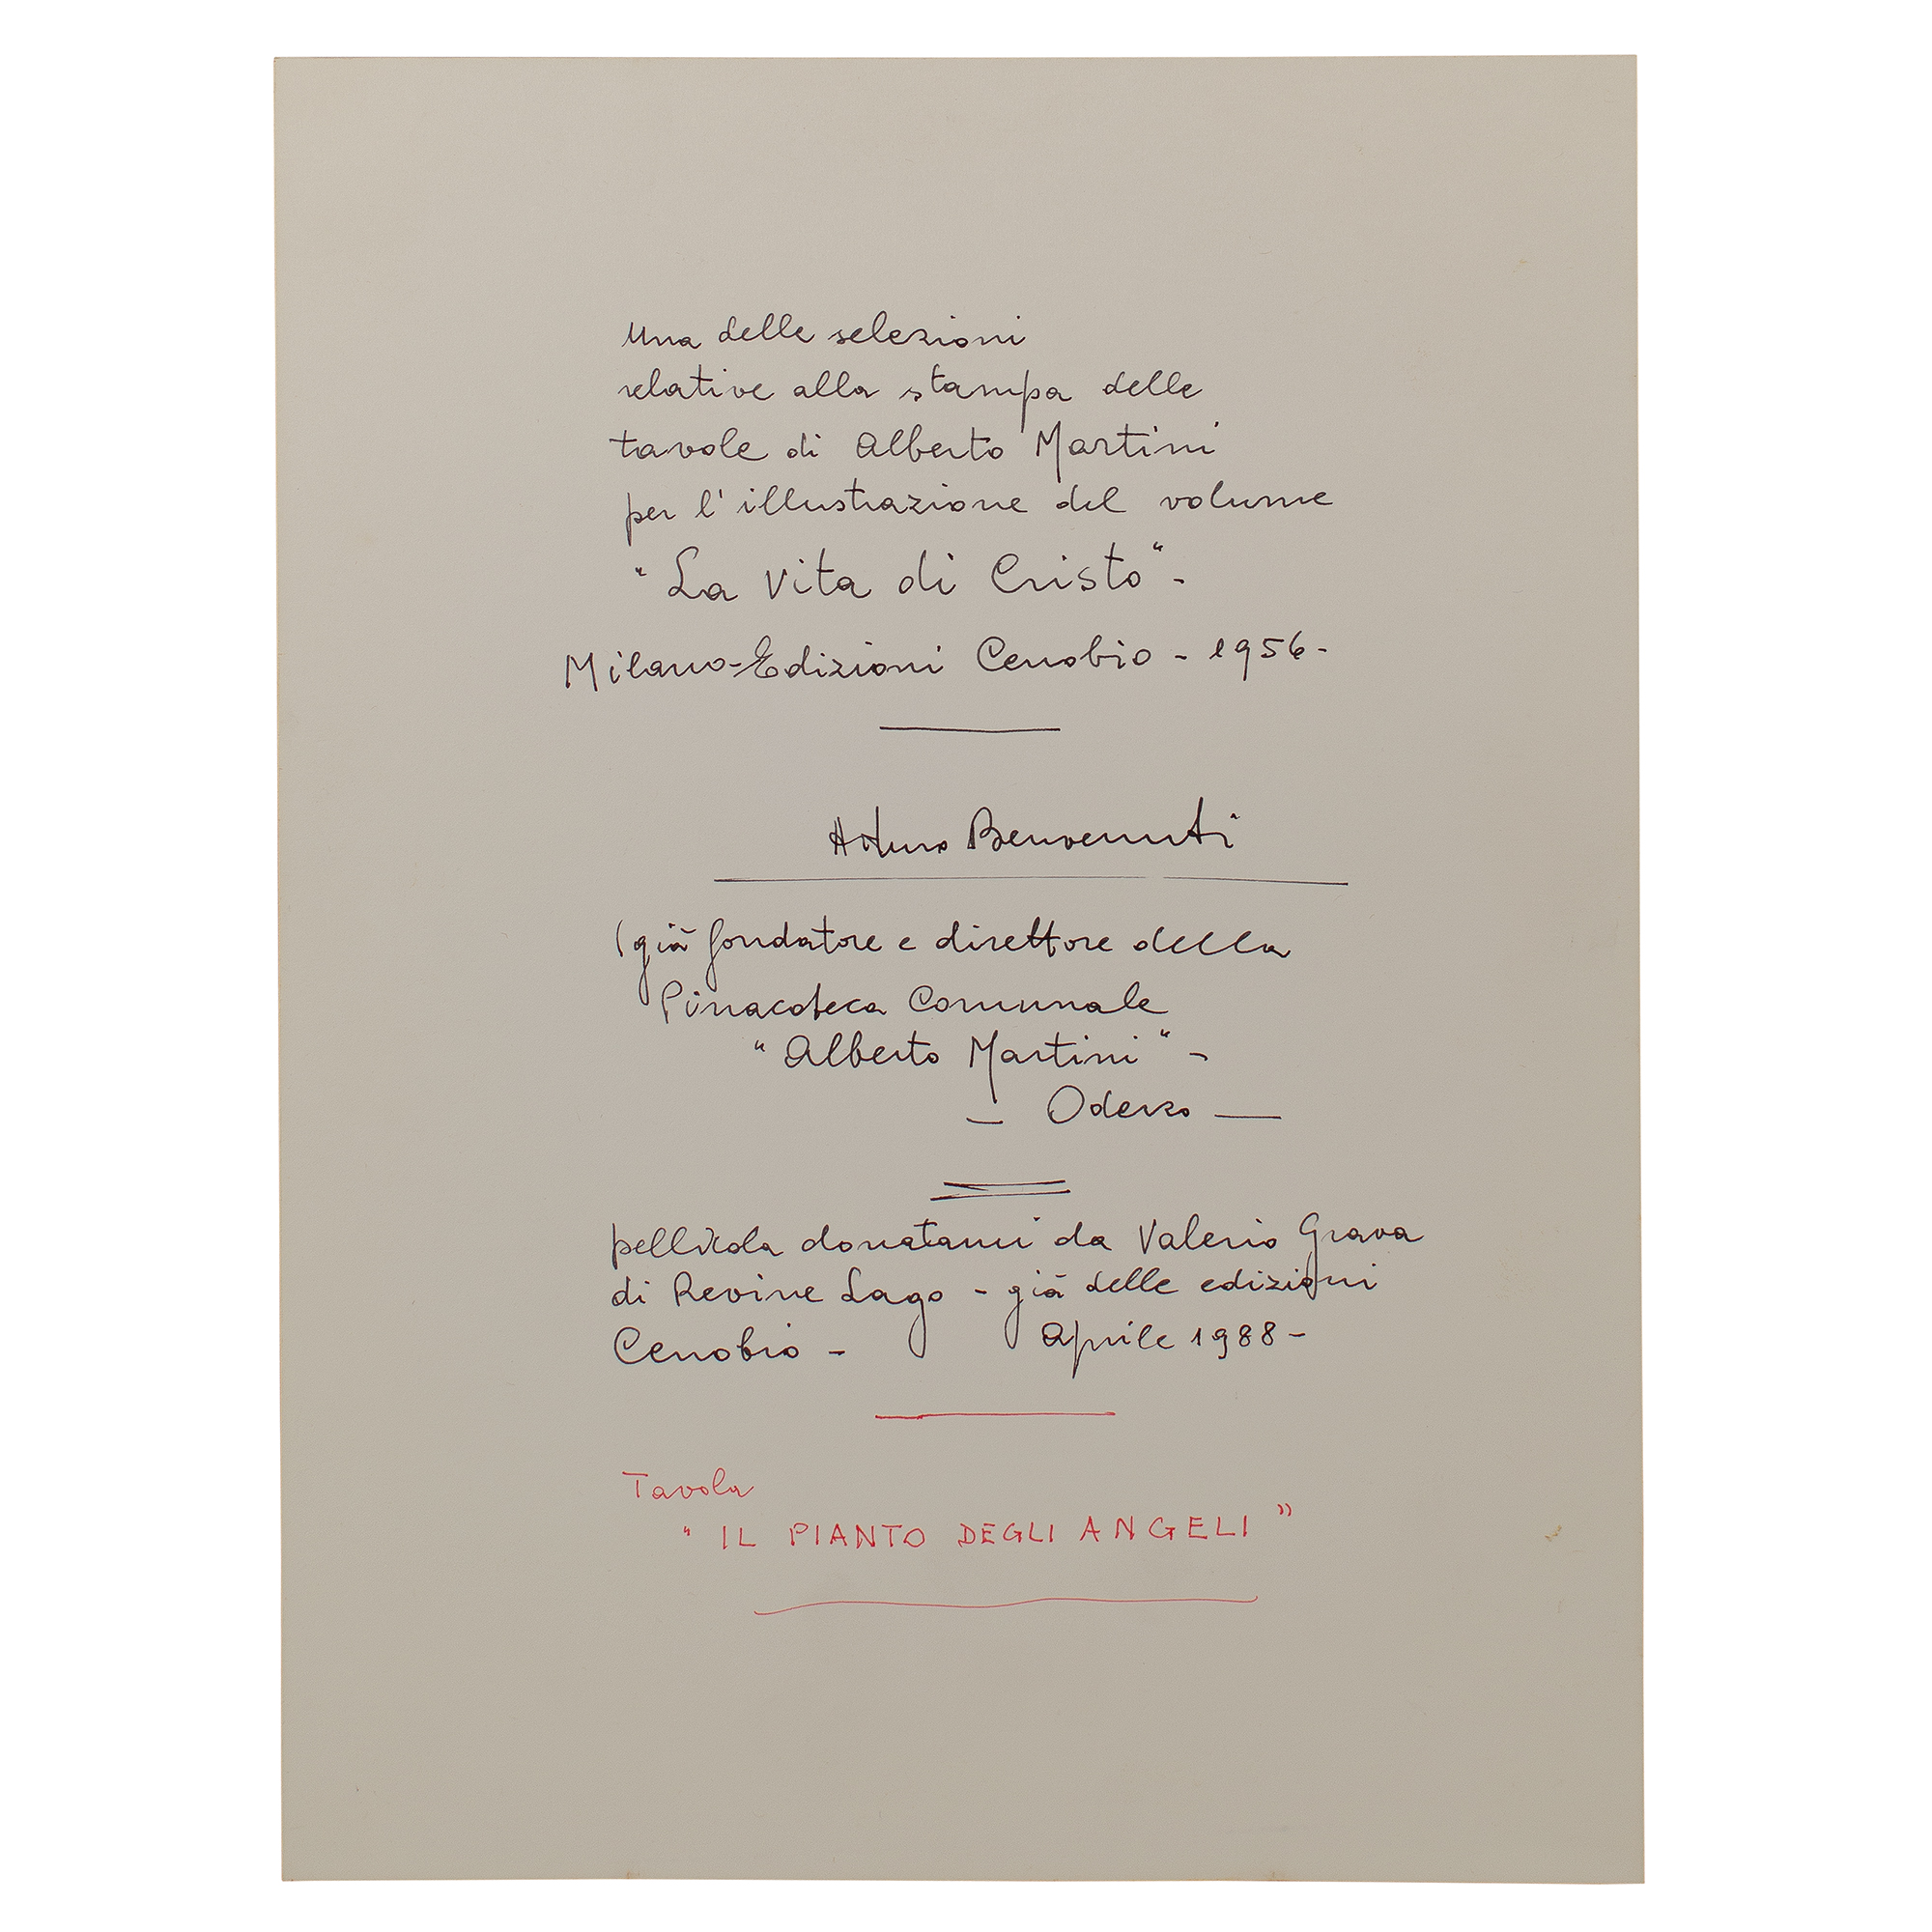 Una delle selezioni
relative alla stampa delle
tavole di Alberto Martini
per l'illustrazione del volume
"La Vita di Cristo" -
Milano - Edizioni Cenobio - 1956 -
Arturo Benvenuti
(già fondatore e direttore della
Pinacoteca Comunale
"Alberto Martini" -
- Oderzo -
pellicola donatami da Valerio Grava
di Revine Lago - già delle edizioni
Cenobio - Aprile 1988 -
Tavola
"IL PIANTO DEGLI ANGELI"